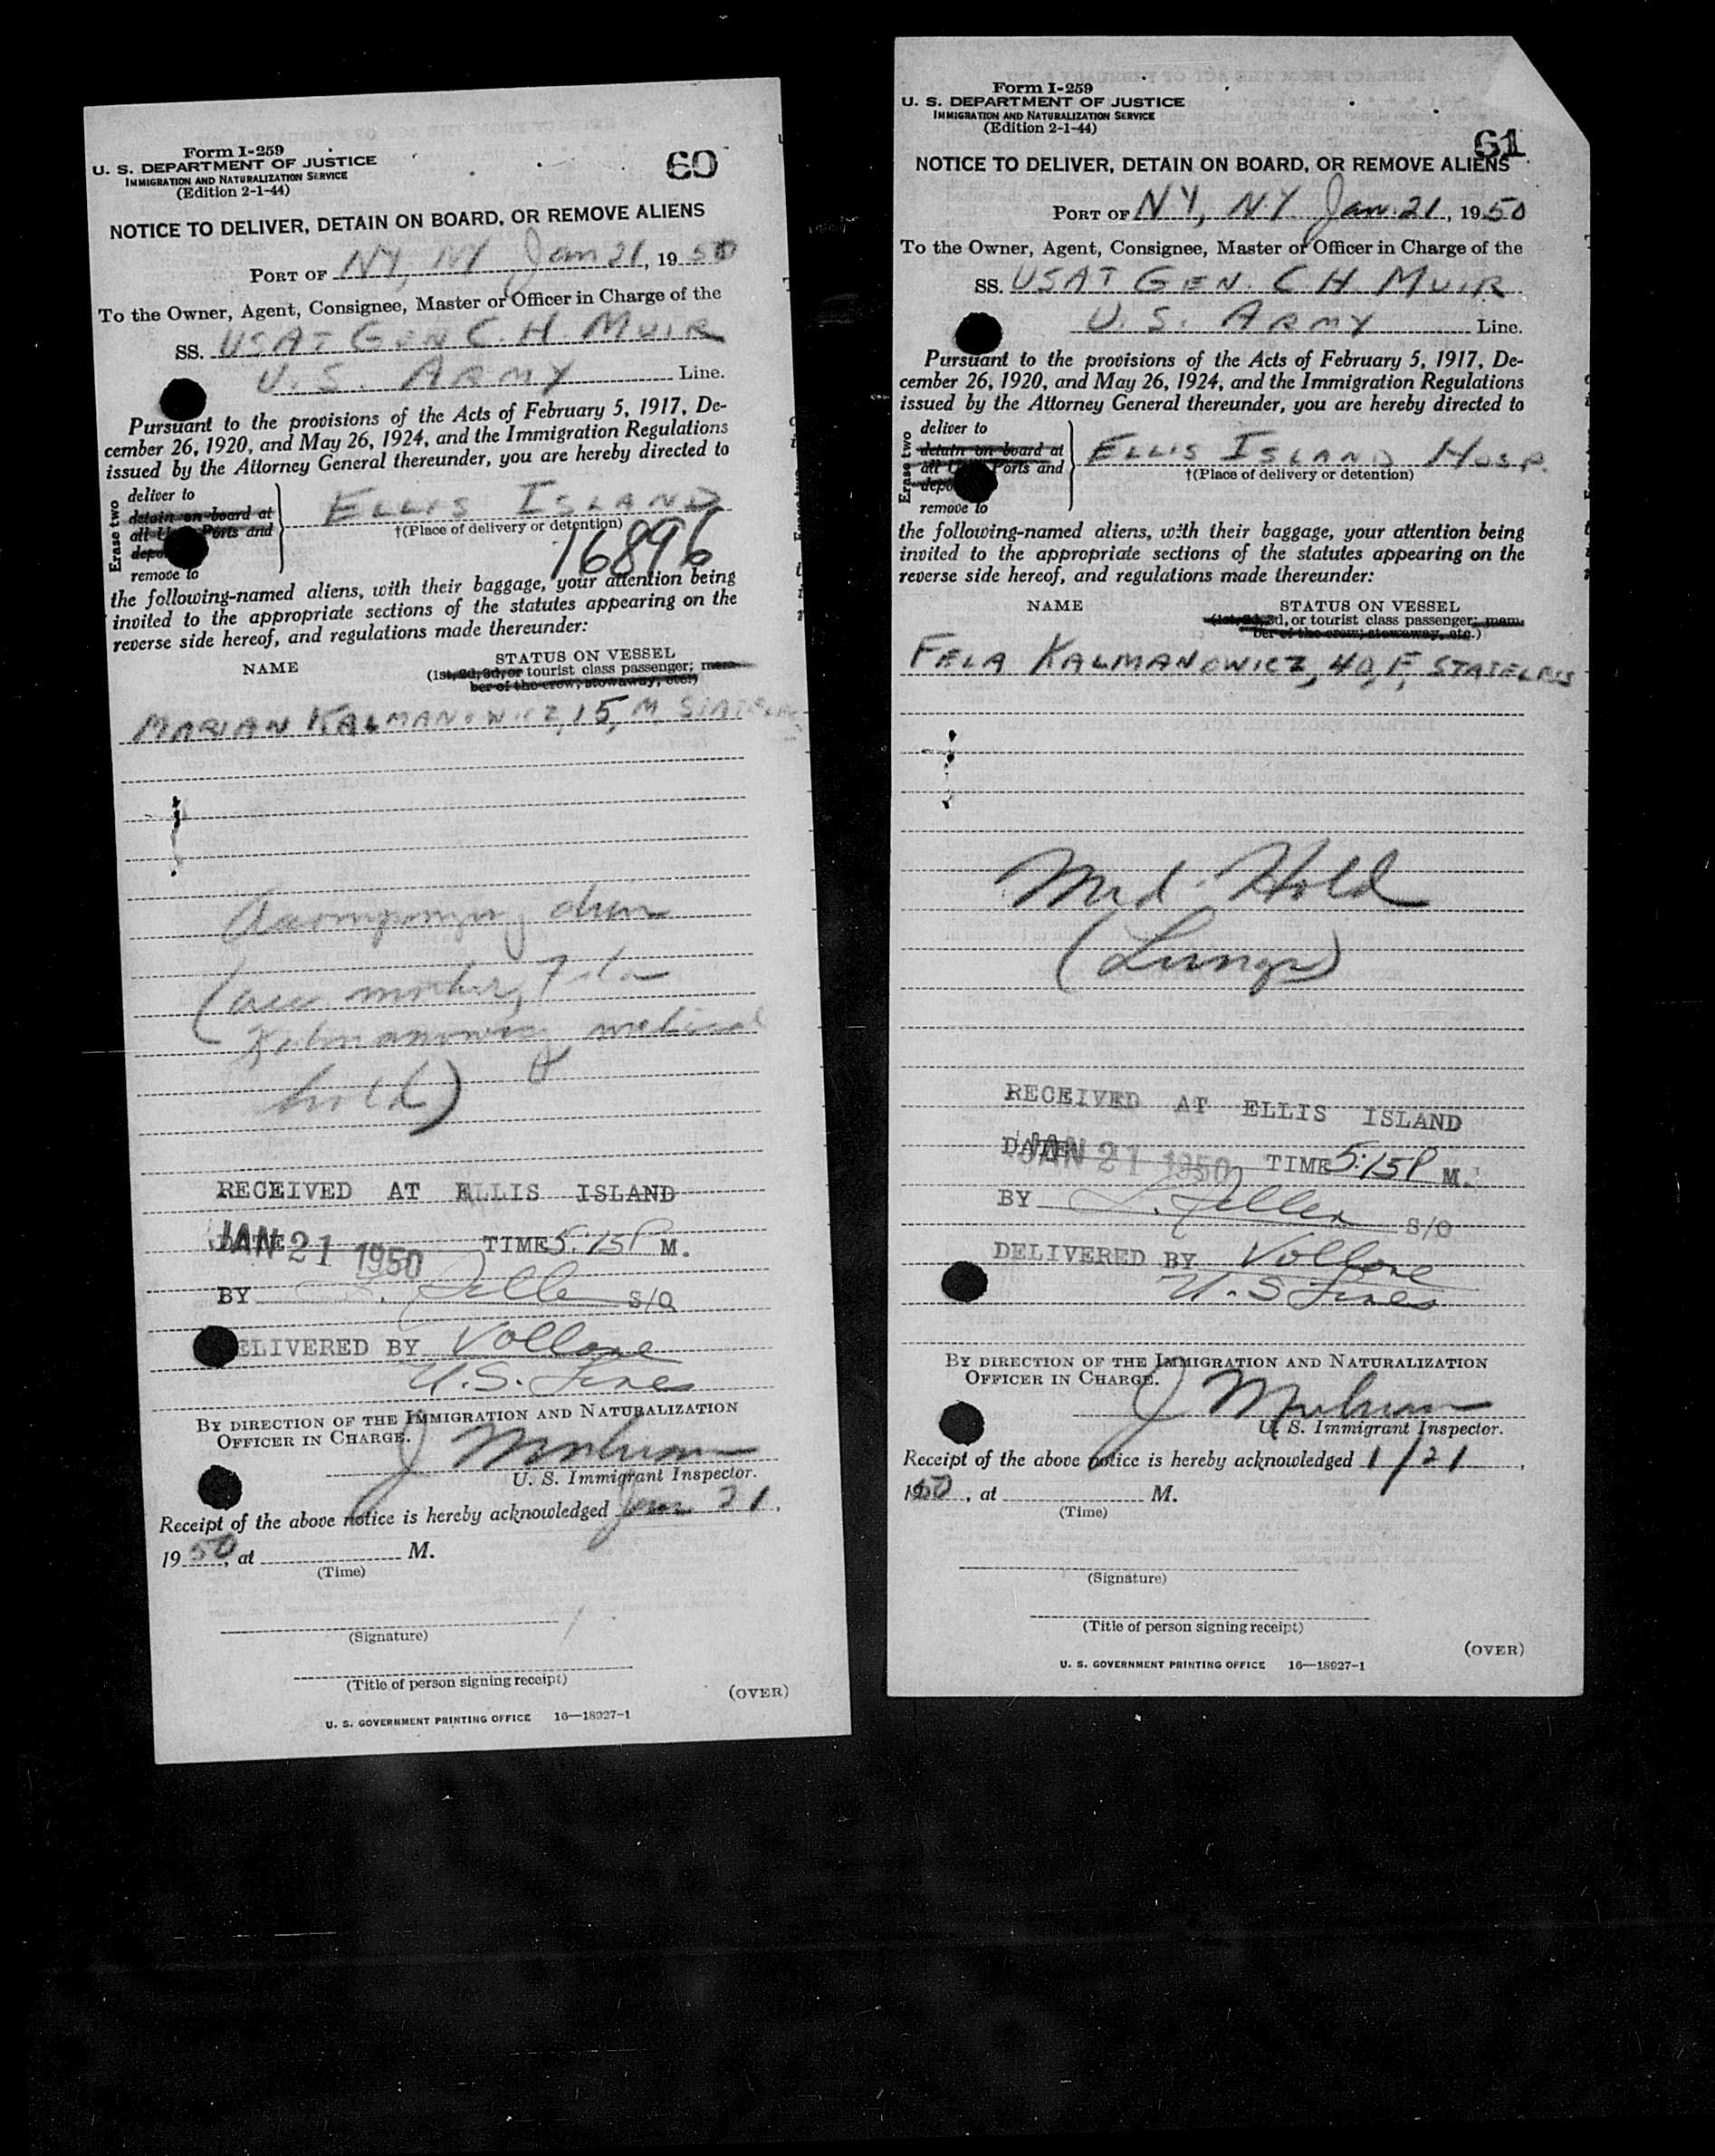 Form I-259
U. S. DEPARTMENT OF JUSTICE
IMMIGRATION AND NATURALIZATION SERVICE
(Edition 2-1-44)
60
NOTICE TO DELIVER, DETAIN ON BOARD, OR REMOVE ALIENS
PORT OF NY, NY Jan 21, 1950
To the Owner, Agent, Consignee, Master or Officer in Charge of the
SS. USAT GEN C. H. MUIR
U. S. ARMY Line.
Pursuant to the provisions of the Acts of February 5, 1917, De-
cember 26, 1920, and May 26, 1924, and the Immigration Regulations
issued by the Attorney General thereunder, you are hereby directed to
Erase two
deliver to
detain on board at
all Ports and
remove to
ELLIS ISLAND
†(Place of delivery or detention)
16896
the following-named aliens, with their baggage, your attention being
invited to the appropriate sections of the statutes appearing on the
reverse side hereof, and regulations made thereunder:
NAME
STATUS ON VESSEL
(1st, 2d, 3d, or tourist class passenger; mem-
ber of the crew, stowaway, etc.)
MARIAN KALMANOWICZ, 15, M, STATELESS
Accompanying alien
(see mother, Fela
Kalmanowicz, medical
hold)
RECEIVED AT ELLIS ISLAND
DATE JAN 21 1950 TIME 5:15P M.
BY S/O
DELIVERED BY Vollone
U.S. Lines
BY DIRECTION OF THE IMMIGRATION AND NATURALIZATION
OFFICER IN CHARGE.
U. S. Immigrant Inspector.
Receipt of the above notice is hereby acknowledged Jan 21,
1950, at M.
(Time)
(Signature)
(Title of person signing receipt)
(OVER)
U. S. GOVERNMENT PRINTING OFFICE 16—18927-1
Form I-259
U. S. DEPARTMENT OF JUSTICE
IMMIGRATION AND NATURALIZATION SERVICE
(Edition 2-1-44)
61
NOTICE TO DELIVER, DETAIN ON BOARD, OR REMOVE ALIENS
PORT OF NY, NY Jan. 21, 1950
To the Owner, Agent, Consignee, Master or Officer in Charge of the
SS. USAT GEN. C H. MUIR
U. S. ARMY Line.
Pursuant to the provisions of the Acts of February 5, 1917, De-
cember 26, 1920, and May 26, 1924, and the Immigration Regulations
issued by the Attorney General thereunder, you are hereby directed to
Erase two
deliver to
detain on board at
all Ports and
remove to
ELLIS ISLAND HOSP.
†(Place of delivery or detention)
the following-named aliens, with their baggage, your attention being
invited to the appropriate sections of the statutes appearing on the
reverse side hereof, and regulations made thereunder:
NAME
STATUS ON VESSEL
(1st, 2d, 3d, or tourist class passenger; mem-
ber of the crew, stowaway, etc.)
FELA KALMANOWICZ, 40, F, STATELESS
Med. Hold
(Lungs)
RECEIVED AT ELLIS ISLAND
DATE JAN 21 1950 TIME 5:15P M.
BY S/O
DELIVERED BY Vollone
U.S Lines
BY DIRECTION OF THE IMMIGRATION AND NATURALIZATION
OFFICER IN CHARGE.
U. S. Immigrant Inspector.
Receipt of the above notice is hereby acknowledged 1/21,
1950, at M.
(Time)
(Signature)
(Title of person signing receipt)
(OVER)
U. S. GOVERNMENT PRINTING OFFICE 16—18927-1